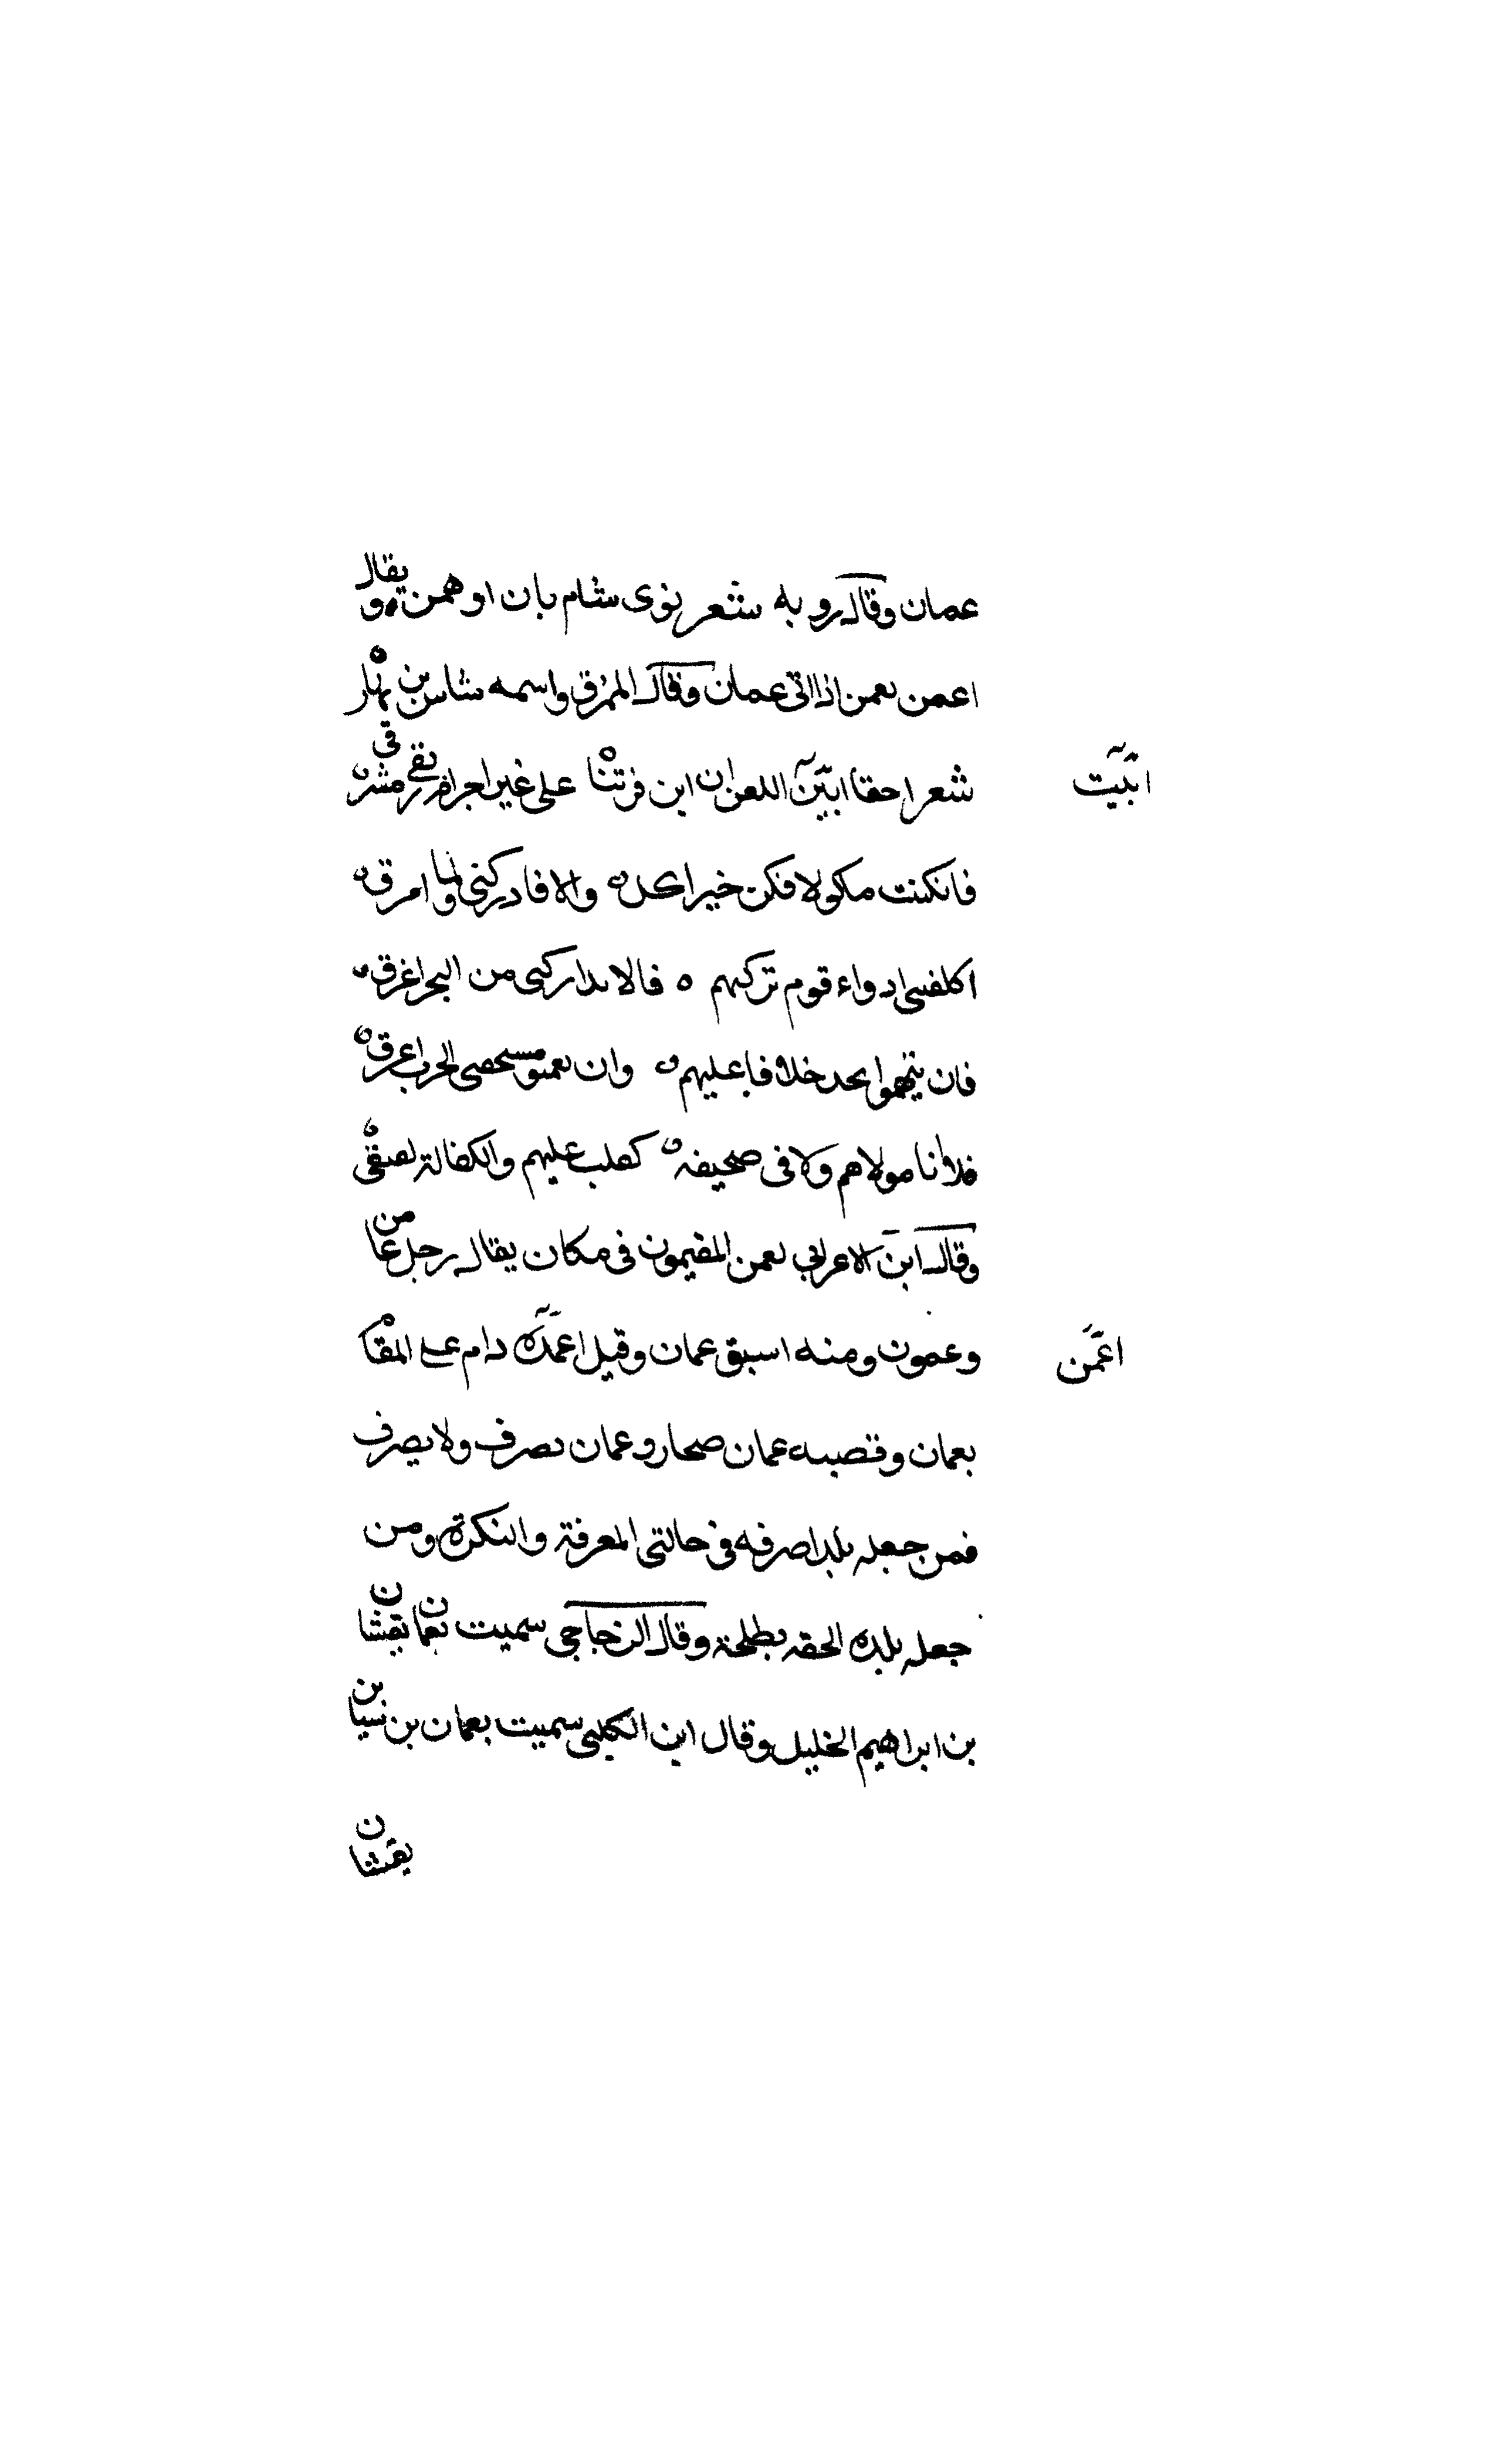 عمان وقال روبه شعر نوى شام بان او همن ويقال
اعمن يعمن اذا اتى عمان وقال الممزق واسمه شاس بن نهار
شعر احقا ابين اللعن ان ابن فرتنا على غير اجرام بريقى مشرقى
ابيت
فان كنت ماكولا فكن خير اكل والا فادركنى ولما امزق
اكلفتنى ادواء قوم تركتهم فالا تداركنى من البحر اغرق
فان يتهموا بحد خلافا عليهم وان يعمنو مستحقبى الحرب اعرق
فلا انا مولاهم ولا فى صحيفه كفلت عليهم والكفالة تعتقى
وقال ابن الاعرابي يعمن المقيمون فى مكان يقال رجل عامن
وعمون ومنه اسبق عمان وقيل اعمن دام على المقام
اعمن
بعمان وقصبه عمان صحار وعمان يصرف ولا يصرف
فمن جعله بلدا صرفه فى حالتى المعرفة والنكرة ومن
جعله بلده الحقه بطلحة وقال الزجاجى سميت بعمان بن يفثان
بن ابراهيم الخليل وقال ابن الكلبى سميت بعمان بن سبا بن
يفثان